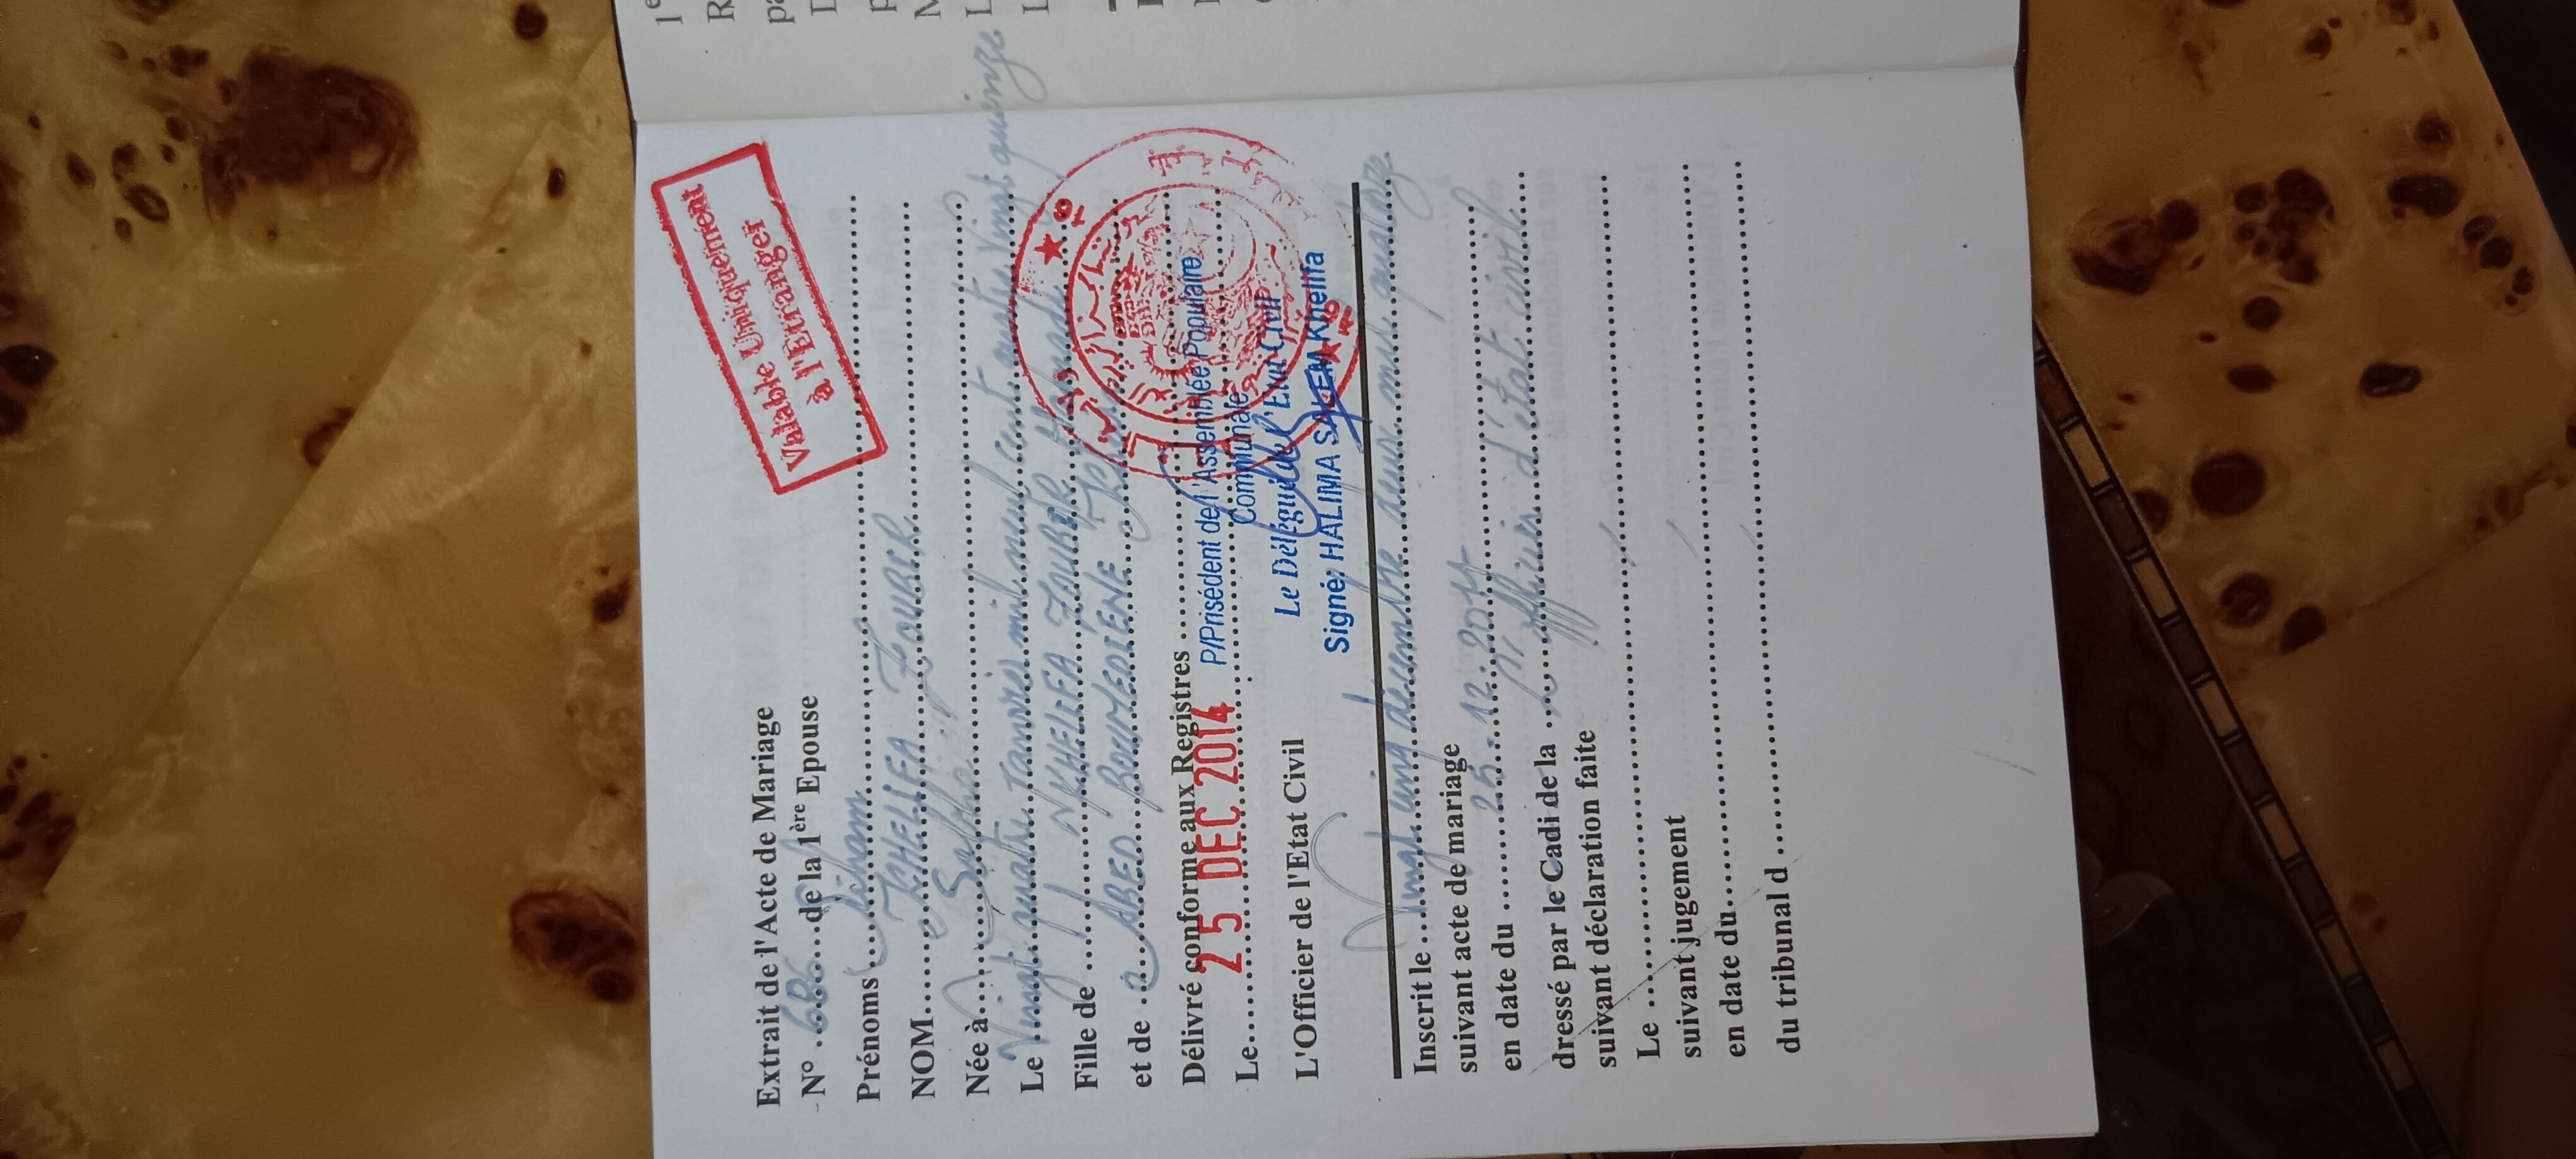 Valable Uniquement
à l'Etranger
Extrait de l'Acte de Mariage
- N° 686 de la 1ère Epouse
Prénoms
NOM KHELIFA ZOUBIR
Née à
Le Vingt quatre Janvier mil neuf cent quatre Vingt quinze
Fille de KHELIFA ZOUBIR
et de ABED BOUMEDIENE
Délivré conforme aux Registres
Le 25 DEC 2014
P/Prisédent de l'Assemblée Populaire
Communale
Le Délégué de l'Etat Civil
Signé: HALIMA SALEM Khelifa
L'Officier de l'Etat Civil
Inscrit le Vingt cinq décembre deux mille quatorze
suivant acte de mariage
en date du 25.12.2014
dressé par le Cadi de la L'officier d'état civil
suivant déclaration faite
Le
suivant jugement
en date du
du tribunal d